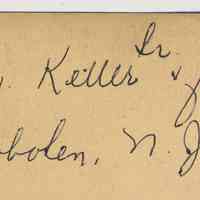 Keller Sr. &
Hoboken, N. J.